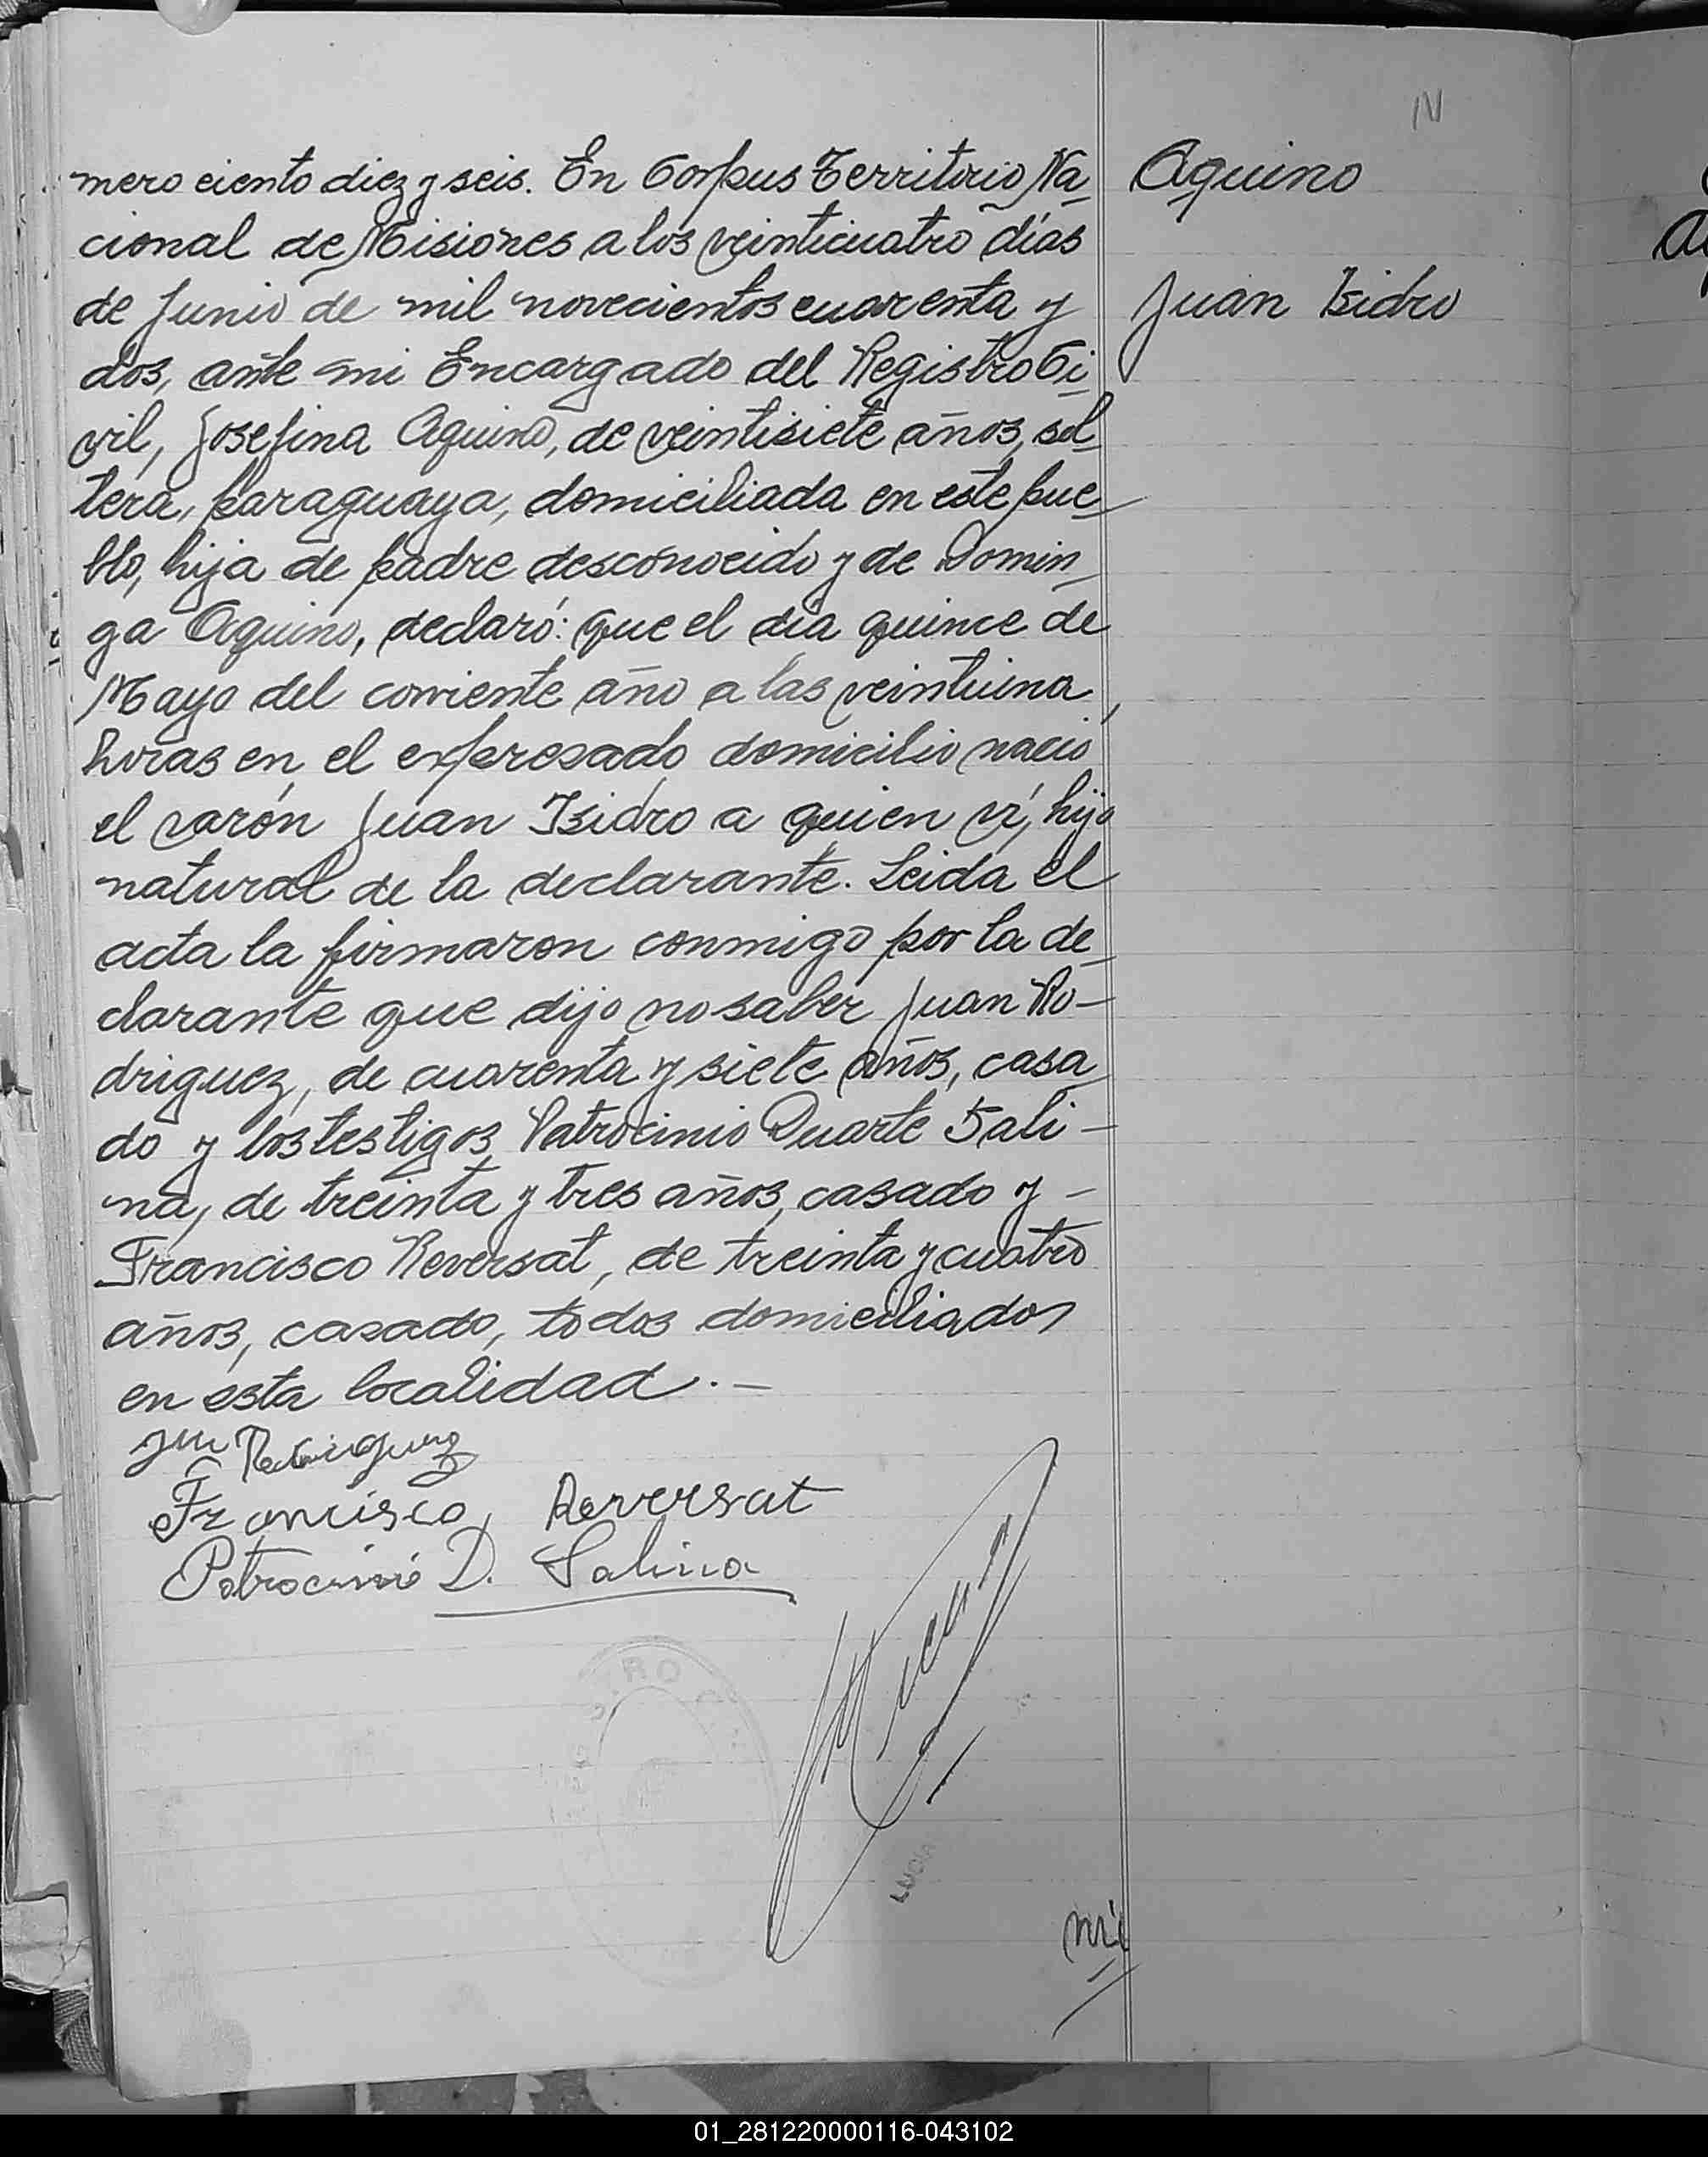 N
mero ciento diez y seis. En Corpus Territorio Na
cional de Misiones a los veinticuatro días
de Junio de mil novecientos cuarenta y
dos, ante mi Encargado del Registro Ci
vil, Josefina Aquino, de veintisiete años, sol
tera, paraguaya, domiciliada en este pue
blo, hija de padre desconocido y de Domin
ga Aquino, declaró: que el día quince de
Mayo del corriente año a las veintiuna
horas en el expresado domicilio nació
el varón Juan Isidro a quien ví, hijo
natural de la declarante. Leida el
acta la firmaron conmigo por la de
clarante que dijo no saber Juan Ro-
driguez, de cuarenta y siete años, casa
do y los testigos Patrocinio Duarte Sali-
na, de treinta y tres años, casado y -
Francisco Reversat, de treinta y cuatro
años, casado, todos domiciliados
en esta localidad. -
Aquino
Juan Isidro
Jn Rodriguez
Francisco Reversat
Patrocinio D. Salina
LUCIA
01_281220000116-043102